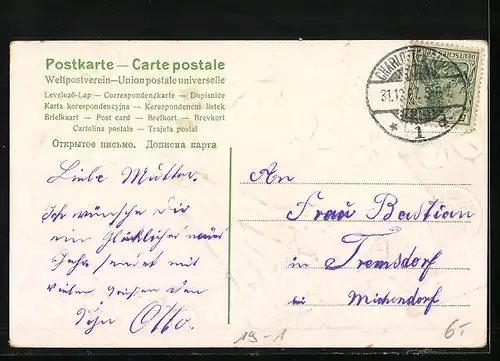 Postkarte — Carte postale
Weltpostverein — Union postale universelle
Levelező-Lap — Correspondenzkarte — Dopisnice
Karta korespondencyjna — Korespondenční lístek
Briefkaart — Post card — Brefkort — Brevkort
Cartolina postale — Tarjeta postal
Открытое письмо. Дописна карта
Liebe Mutter.
Ich wünsche Dir
ein Glückliches neues
Jahr sendet mit
vielen Grüssen dein
Sohn Otto.
An
Frau Bastian
in Tremsdorf
bei Michendorf
DEUTSCHES
1
19-1
6.-